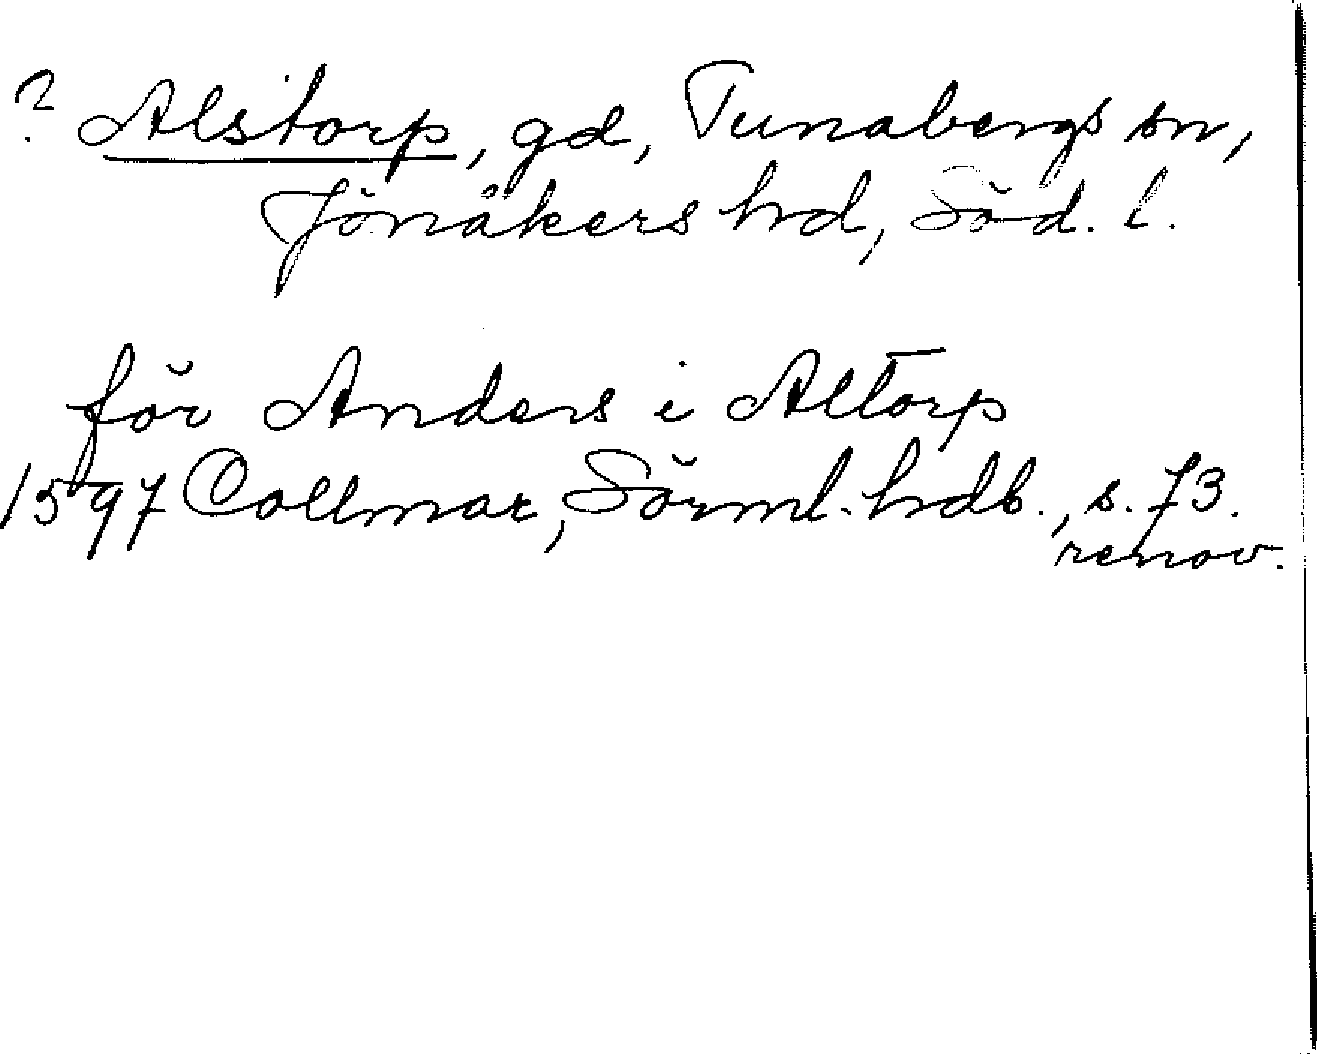 ? Alstorp, gd, Tunabergs sn,
Jönåkers hd, Söd. l.
för Anders i Altorp
1597 Collmar, Sörml. hdb., s. 73.
renov.